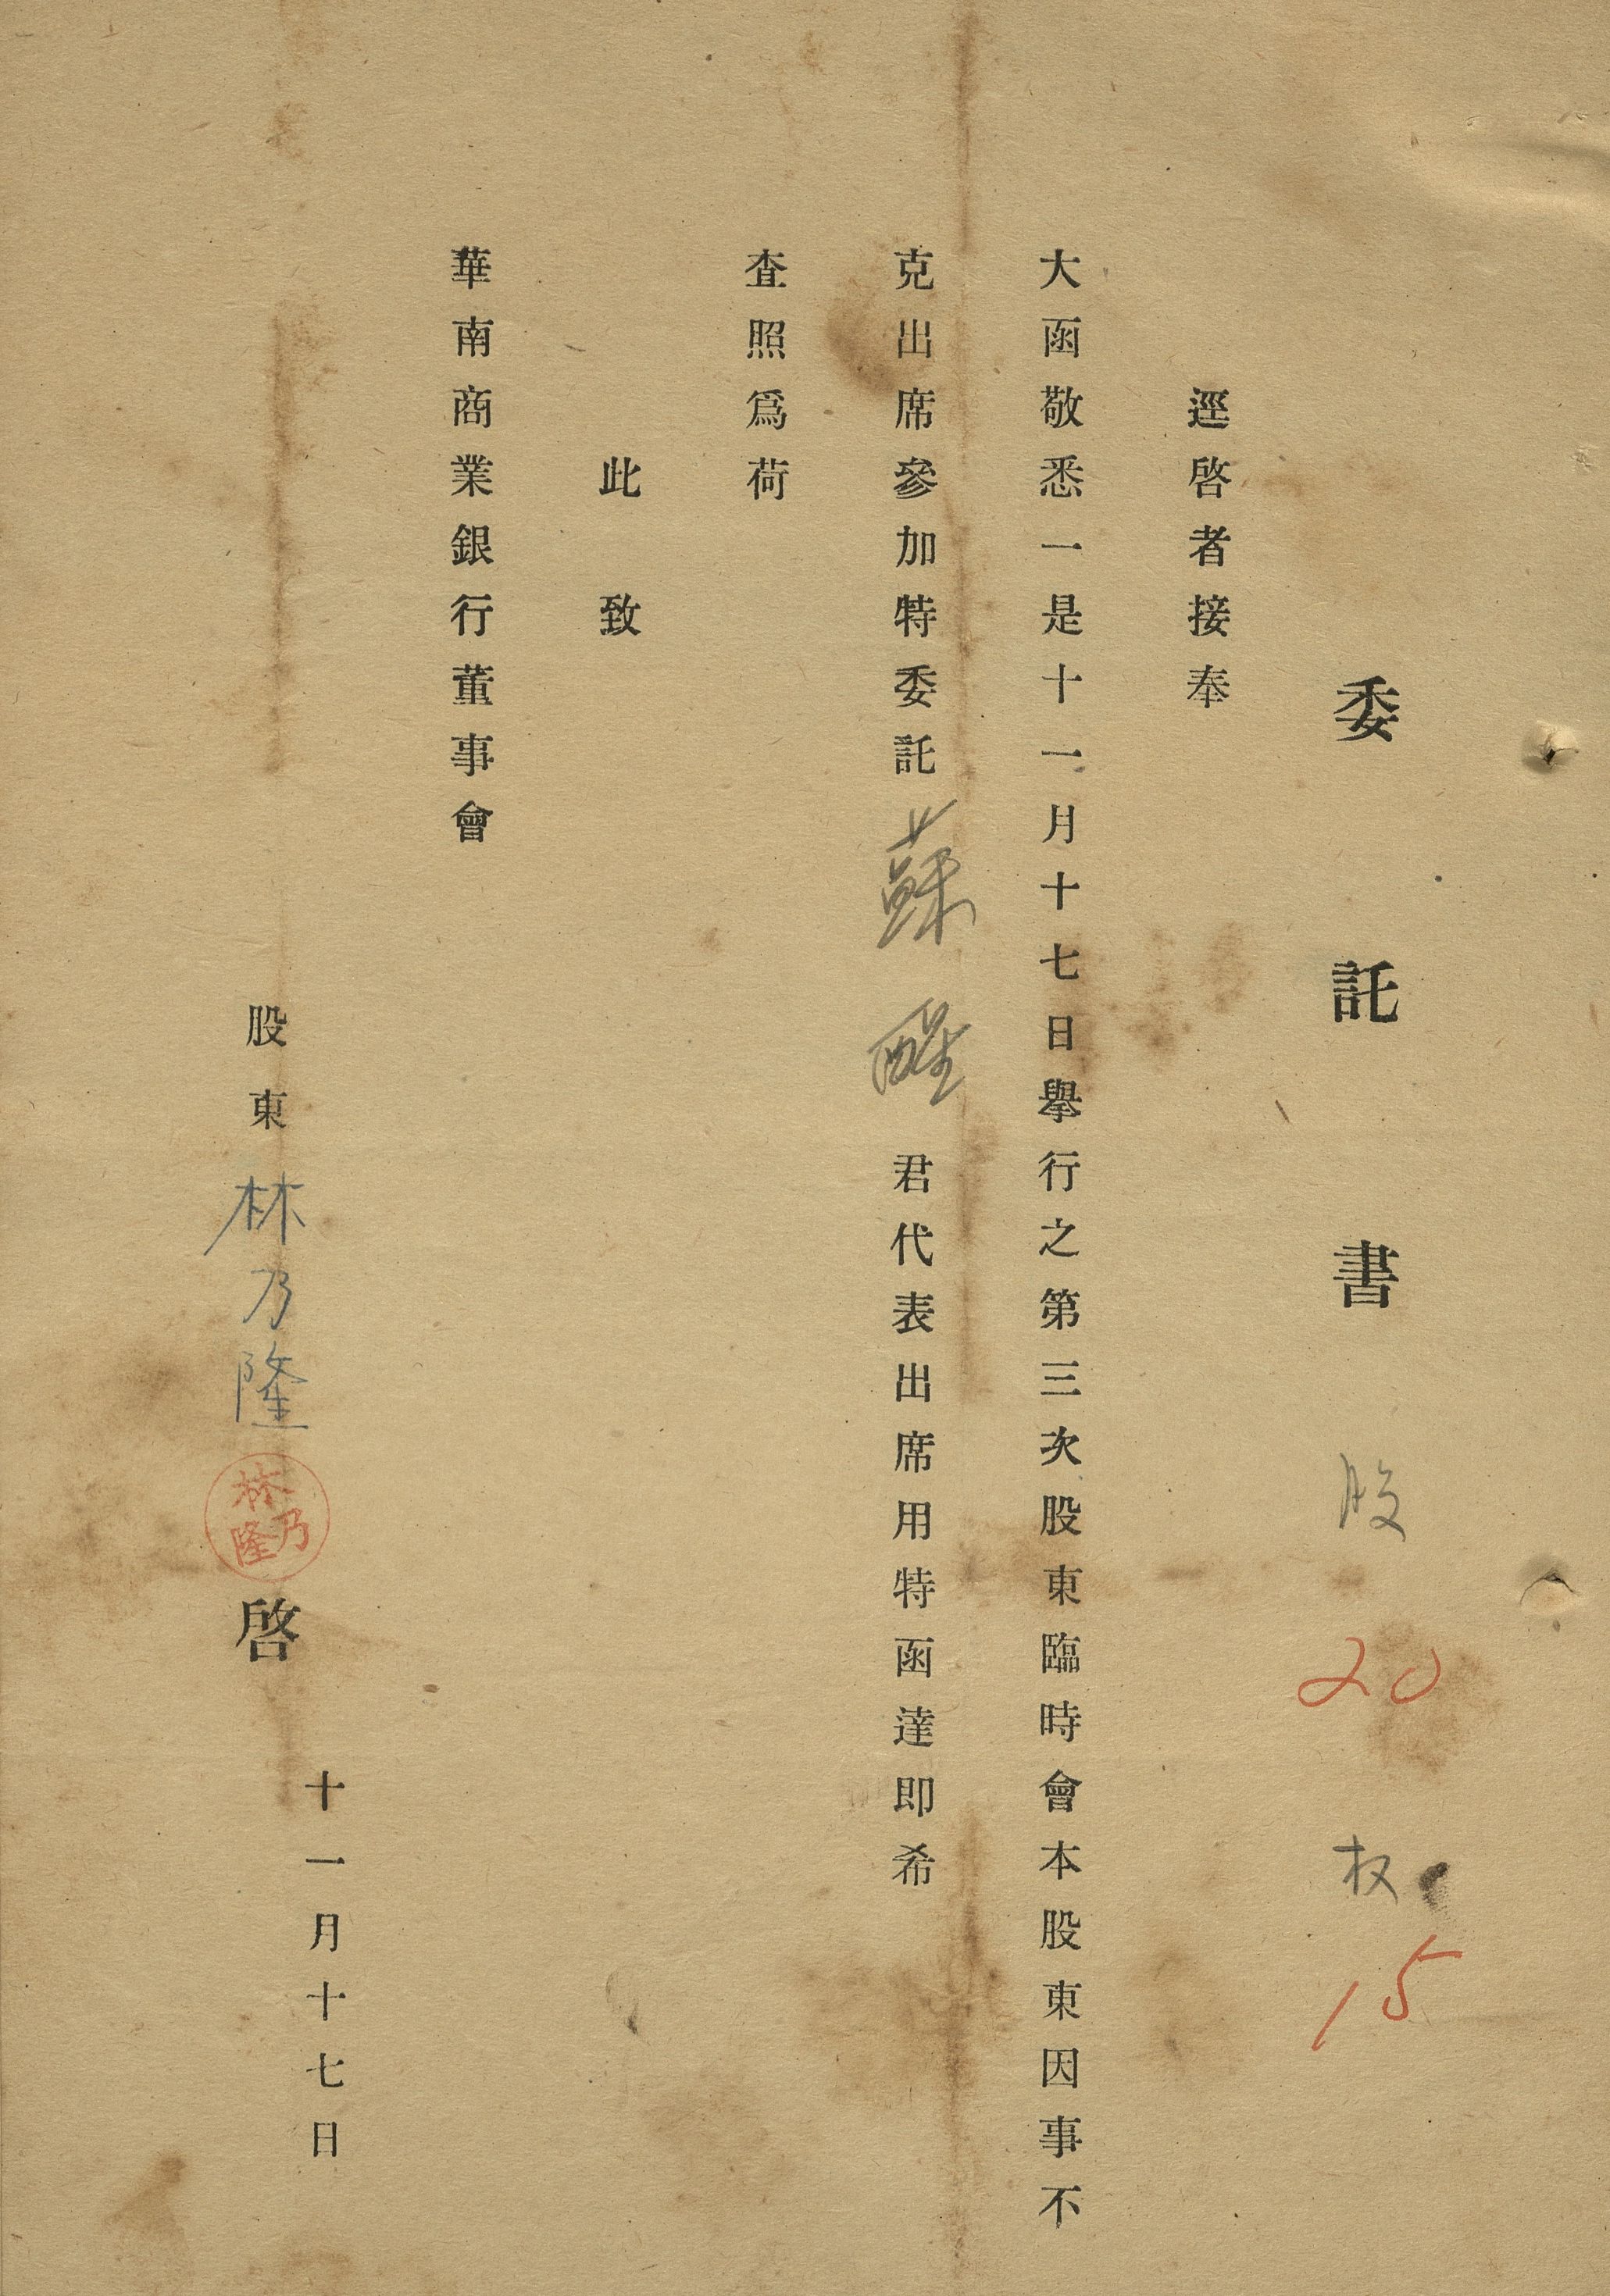 委託書 股 20 权 15
逕啓者接奉
大函敬悉一是十一月十七日舉行之第三次股東臨時會本股東因事不
克出席參加特委託蘇醒君代表出席用特函達即希
查照爲荷
此致
華南商業銀行董事會
十一月十七日
股東林乃隆啓
林乃隆